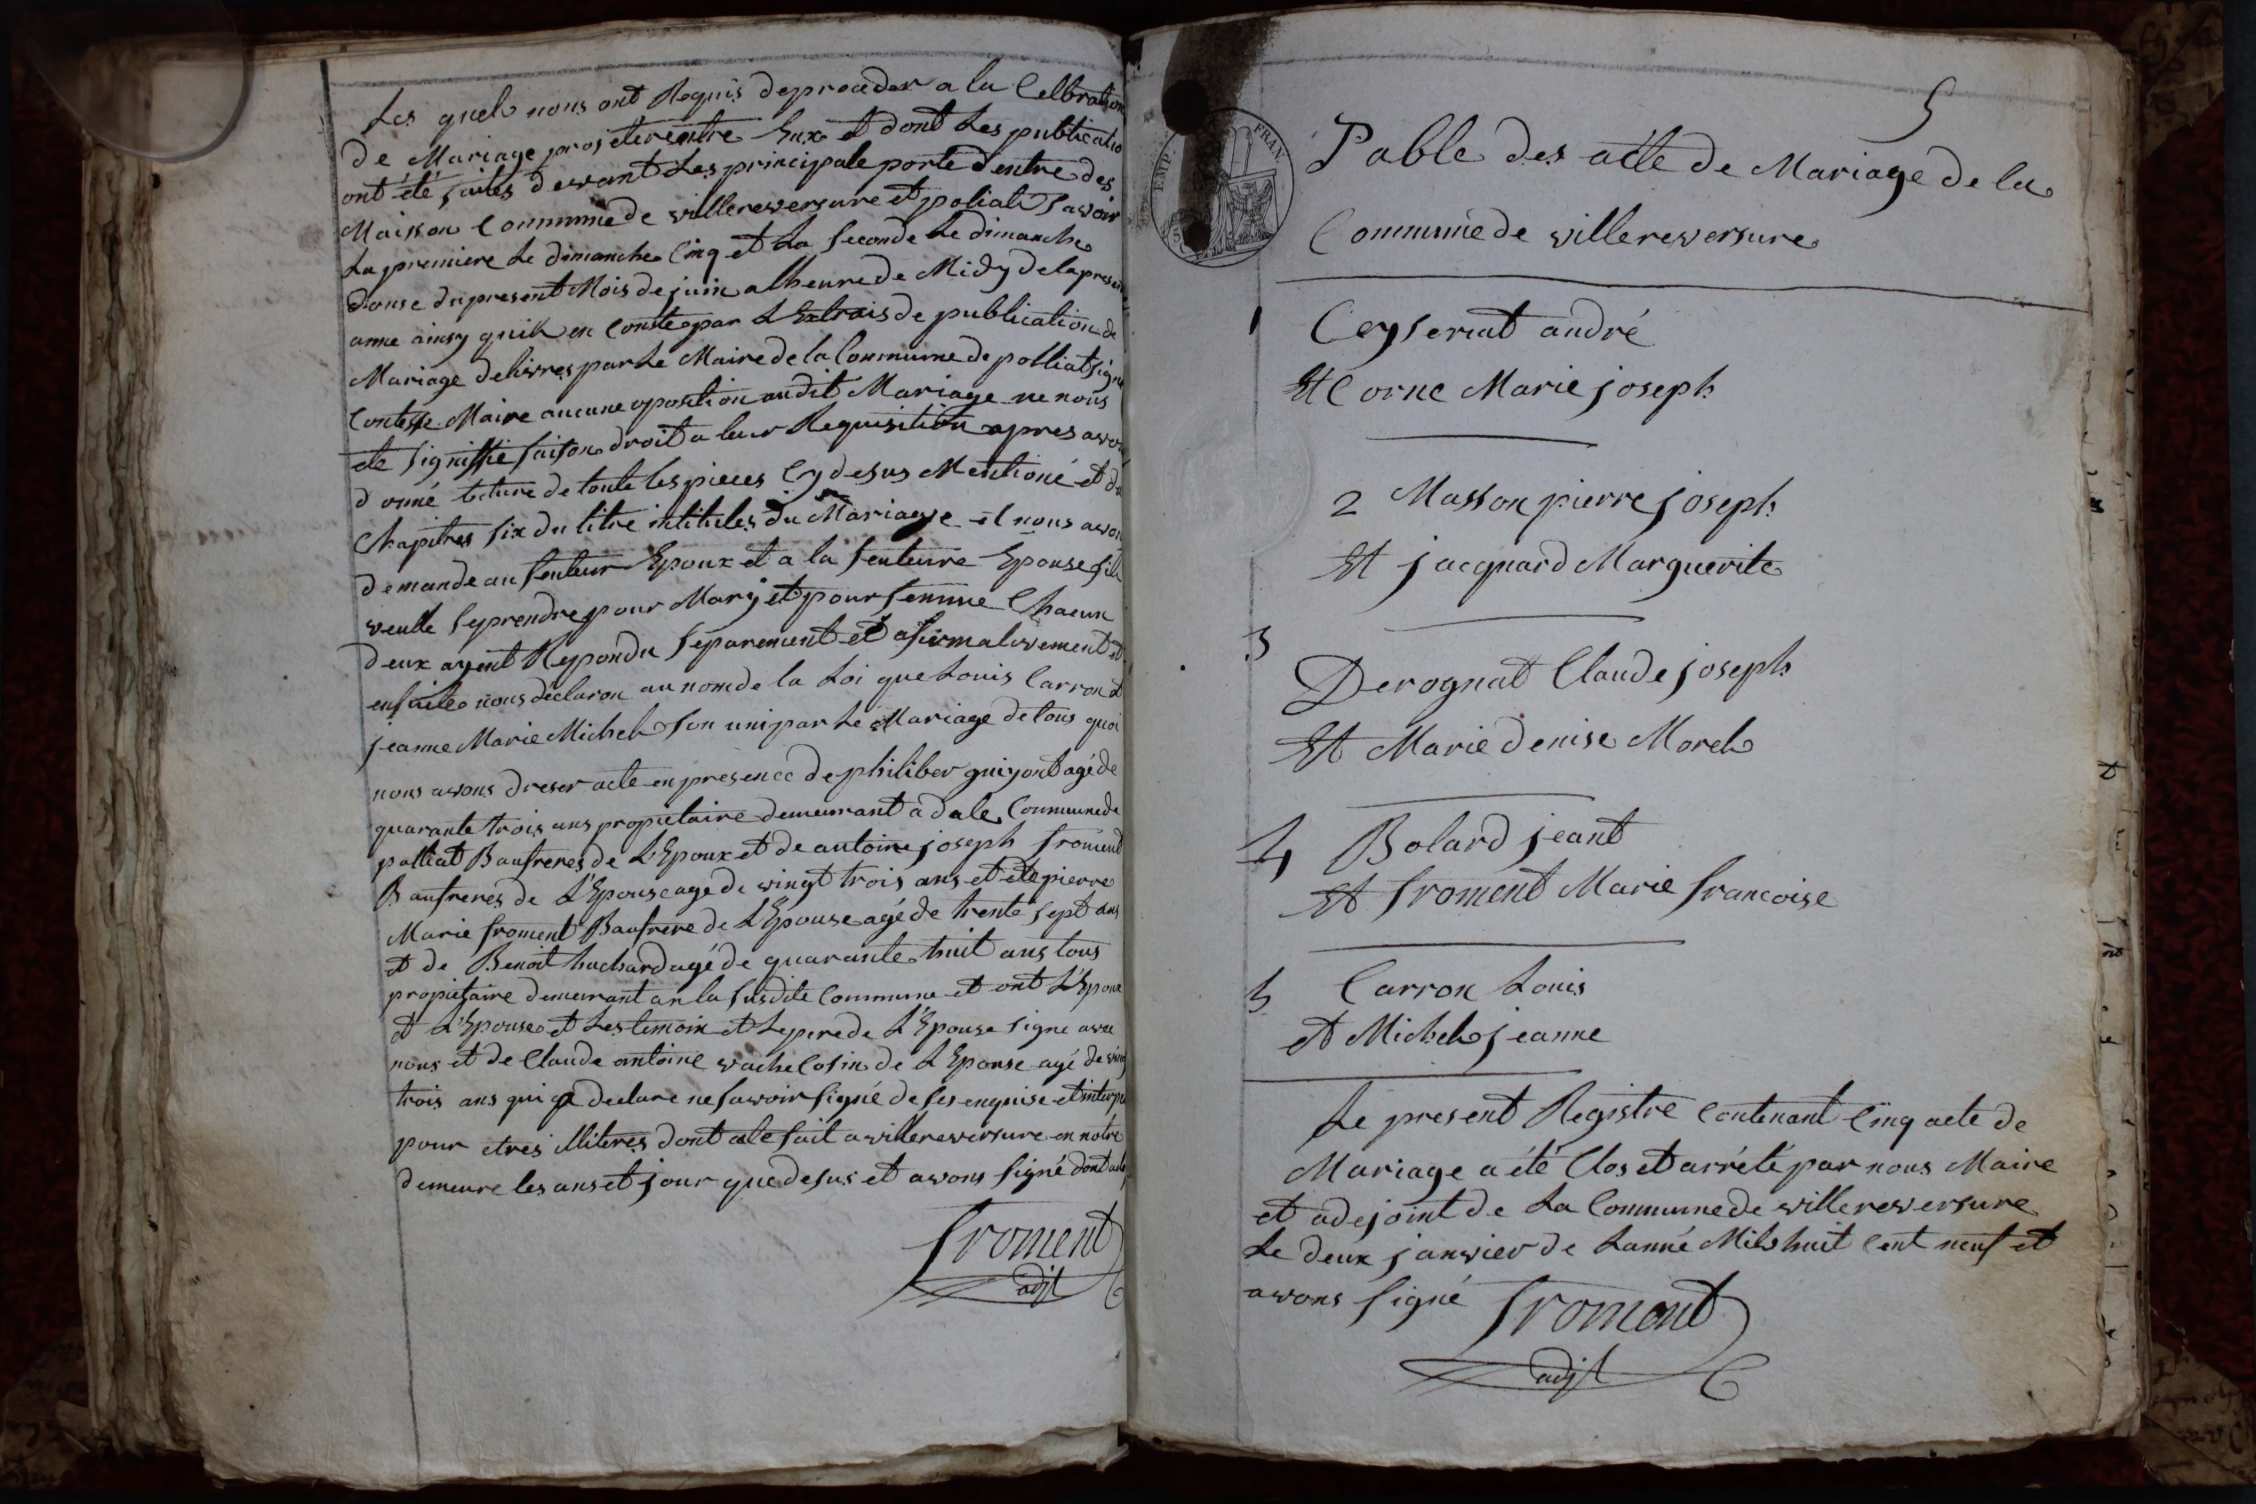 Les quels nous ont Requis de proceder a la Celbration
De Mariage projeter entre Eux et dont Les publicatio
ont été faites devant Les principale porte d'entre des
Maison Commune de villereversure et poliat Savoir
La premiere Le dimanche Cinq et La Seconde Le dimanche
douse du present Mois de juin a lheure de Midy de la presen
anne ainsy quil en Conste par L'Extrais de publication de
Mariage delivres par Le Maire de la Commune de polliat signe
Contesse Maire aucune oposition audit Mariage ne nous
ete signiffie faison droit a leur Requisition apres avoir
donné lecture de toute les pieces Cy desus Mentioné et du
Chapitres six du titre intitules Du Mariage et nous avon
demande au feuteur Epoux et a la feuteure Epouse sil
veulle se prendre pour Mary et pour femme Chacun
deux ayent Repondu separement et afirmativement et
ensuite nous declaron au nom de la Loi que Louis Carron et
jeanne Marie Michel son uni par Le Mariage de tous quoi
nous avons dreser acte en presence de philiber guiyont agé de
quarante trois ans propietaire demeurant a dale Commune de
polliat Baufreres de L'Epoux et de antoine joseph froment
Baufreres de L'Epouse age de vingt trois ans et de pierre
Marie froment Baufrere de L'Epouse agé de trente sept ans
et de Benoit huchard agé de quarante huit ans tous
propietaire demeurant an la susdite Commune et ont L'Epoux
et L'Epouse et Les temoin et Le pere de L'Epouse signe avec
nous et de Claude antoine vache Cosin de L'Epouse agé de ving
trois ans qui a declare ne savoir signé de ses enquise et interpe
pour etres illiteres dont acte fait a villereversure en notre
demeure les ans et jour que desus et avons signé dont acte
froment
adjt
5
EMP. FRAN.
Table des acte de Mariage de la
Commune de villereversure
1 Ceyseriat andré
Et Corne Marie joseph
2 Masson pierre joseph
Et jacquard Marguerite
3
Derognat Claude joseph
Et Marie denise Morel
4 Bolard jeant
Et froment Marie francoise
5 Carron Louis
et Michel jeanne
Le present Registre Contenant Cinq acte de
Mariage a été Clos et arrêté par nous Maire
et adejoint de La Commune de villereversure
Le deux janvier de Lanné Mils huit cent neuf et
avons signé froment
adjt